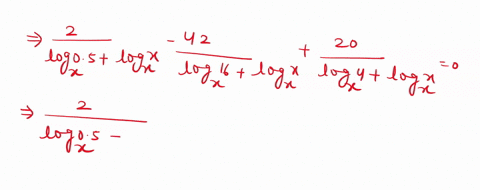 ⇒ 2/(log_x 0.5 + log_x x) - 42/(log_x 16 + log_x x) + 20/(log_x 4 + log_x x) = 0
⇒ 2/(log_x 0.5 -